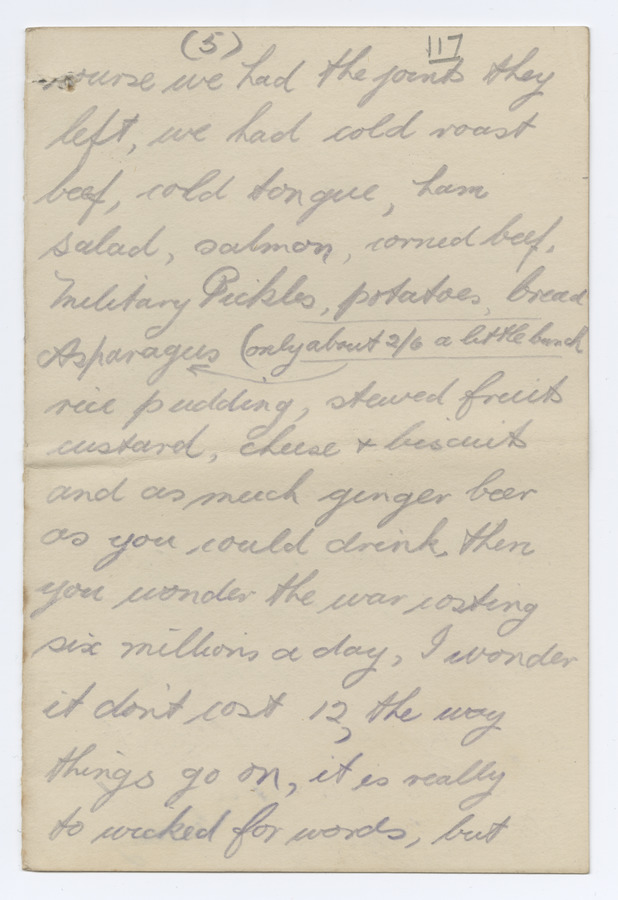 (5) 117
course we had the joints they
left, we had cold roast
beef, cold tongue, ham
salad, salmon, corned beef,
Military Pickles, potatoes, bread
Asparagus (only about 2/6 a little bunch
rice pudding, stewed fruits
custard, cheese + biscuits
and as much ginger beer
as you could drink, then
you wonder the war costing
six millions a day, I wonder
it don't cost 12, the way
things go on, it is really
to wicked for words, but